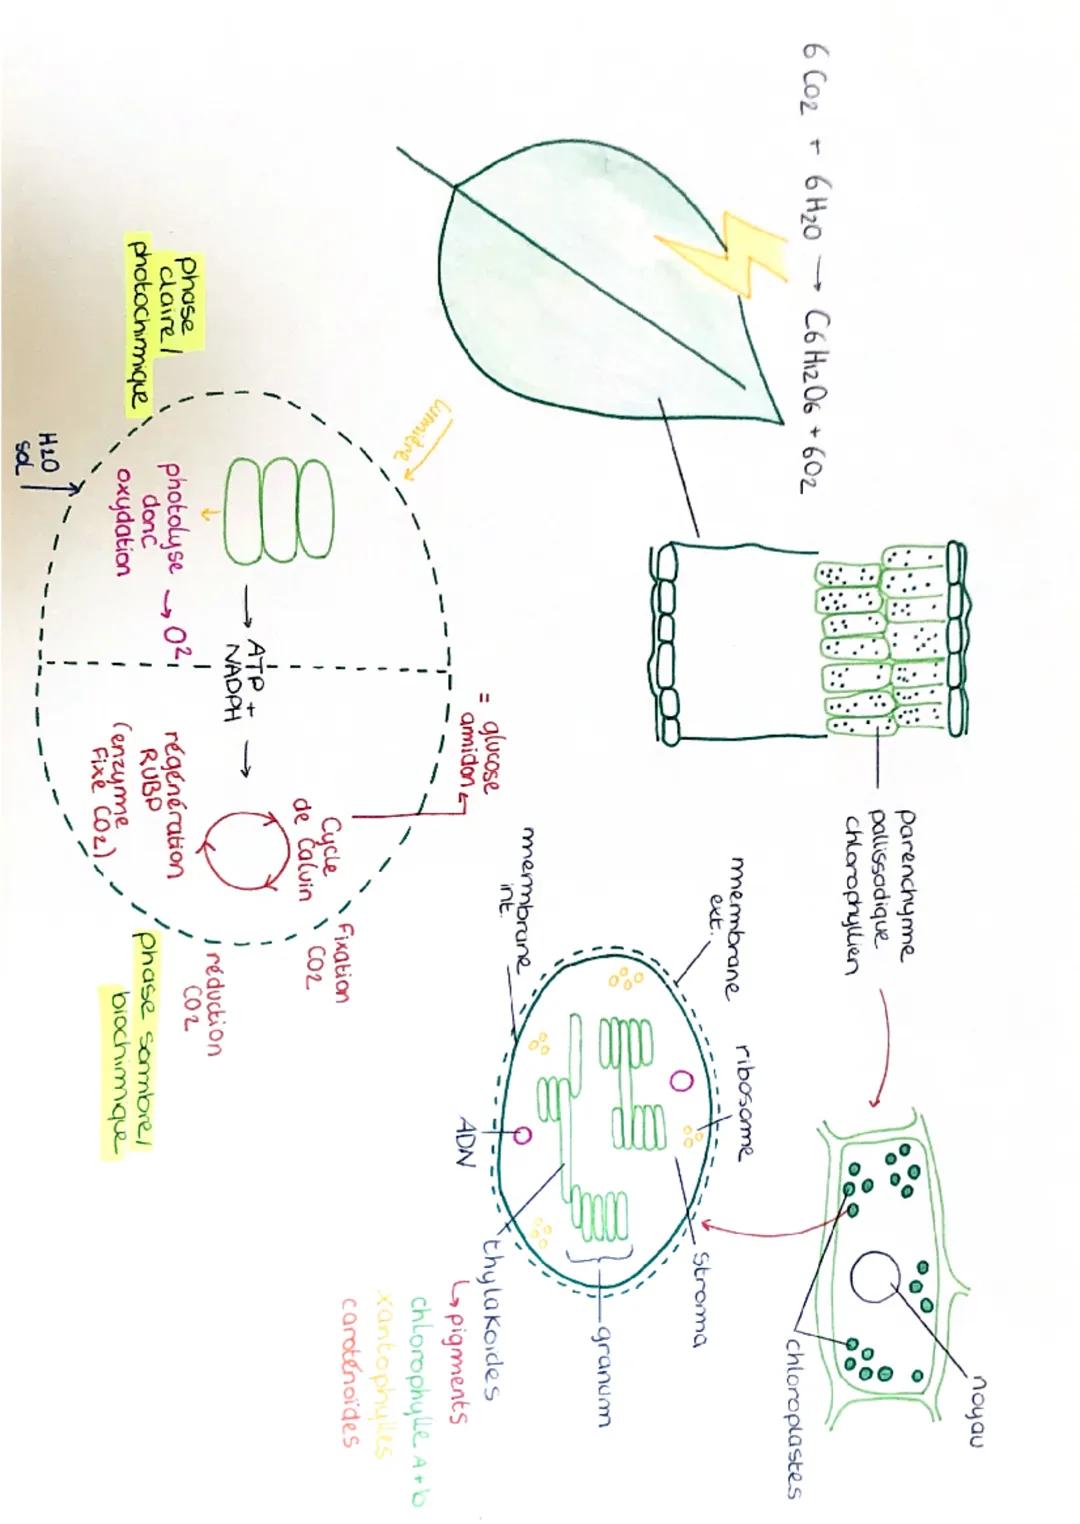 6 CO2 + 6 H2O → C6H12O6 + 6O2
noyau
parenchyme
pallissadique
chlorophyllien
chloroplastes
membrane
ext.
ribosome
stroma
granum
membrane
int.
ADN
thylakoides
↳ pigments
chlorophylle A + b
xantophylles
caroténoïdes
lumière
= glucose
amidon
Cycle
de Calvin
Fixation
CO2
→ ATP +
NADPH →
réduction
CO2
phase
claire /
photochimique
photolyse → O²
donc
oxydation
régénération
RUBP
(enzyme
Fixe CO2)
phase sombre /
biochimique
H2O
sol